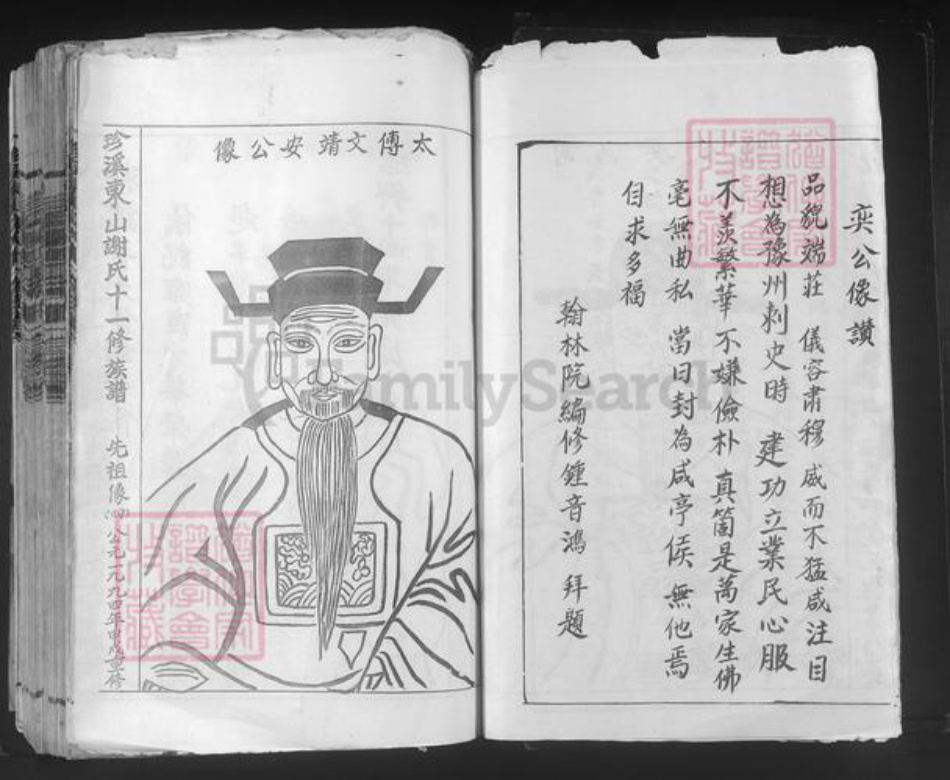 奕公像讚
品貌端莊 儀容肅穆 威而不猛咸注目
想為豫州刺史時 建功立業民心服
不羨繁華 不嫌儉朴 真箇是萬家生佛
毫無曲私 當日封為咸亭侯 無他焉
自求多福
翰林院編修鍾音鴻 拜題
太傅文靖安公像
珍溪東山謝氏十一修族譜 先祖像(四) 公元一九九四年甲戌重修
FamilySearch